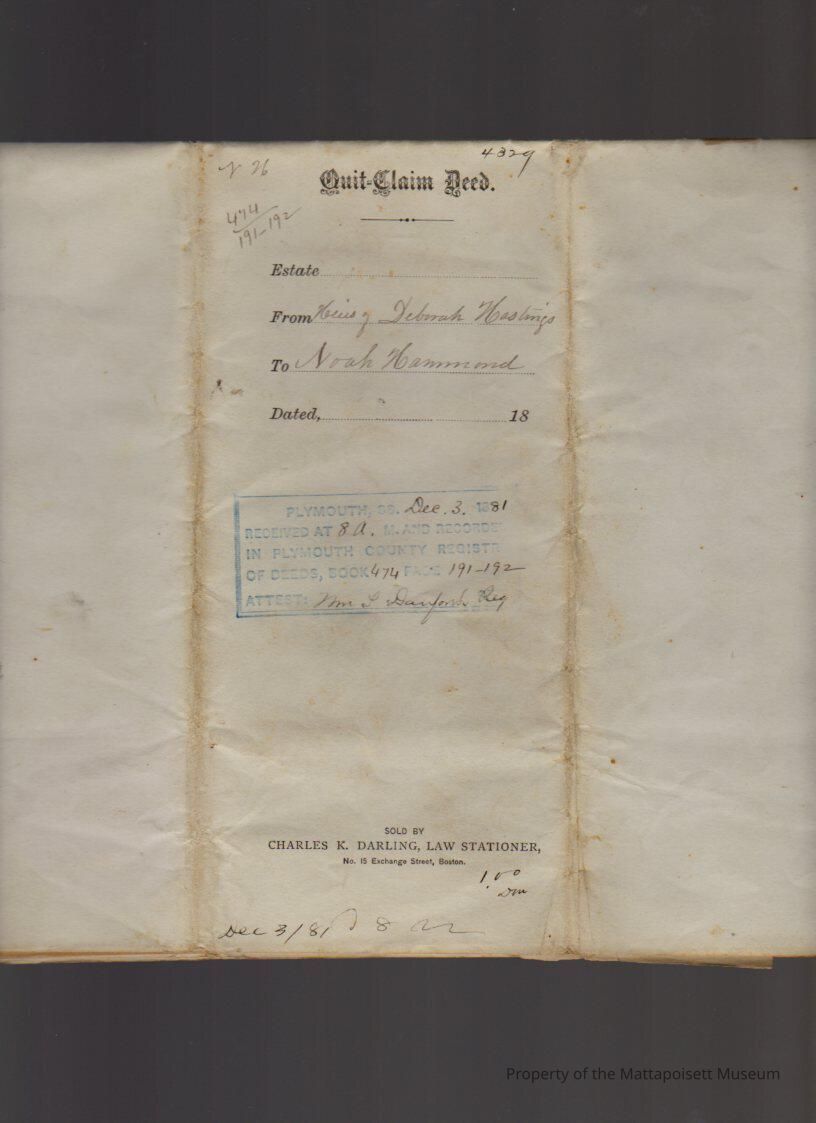 4329
N H
Quit-Claim Deed.
474
191-192
Estate
From Heirs of Deborah Hastings
To Noah Hammond
Dated, 18
PLYMOUTH, SS. Dec. 3. 1881
RECEIVED AT 8 A. M. AND RECORDE
IN PLYMOUTH COUNTY REGISTR
OF DEEDS, BOOK 474 PAGE 191-192
ATTEST: Wm S Danforth Reg
SOLD BY
CHARLES K. DARLING, LAW STATIONER,
No. 15 Exchange Street, Boston.
1.00
Dec 3/81 8
Property of the Mattapoisett Museum